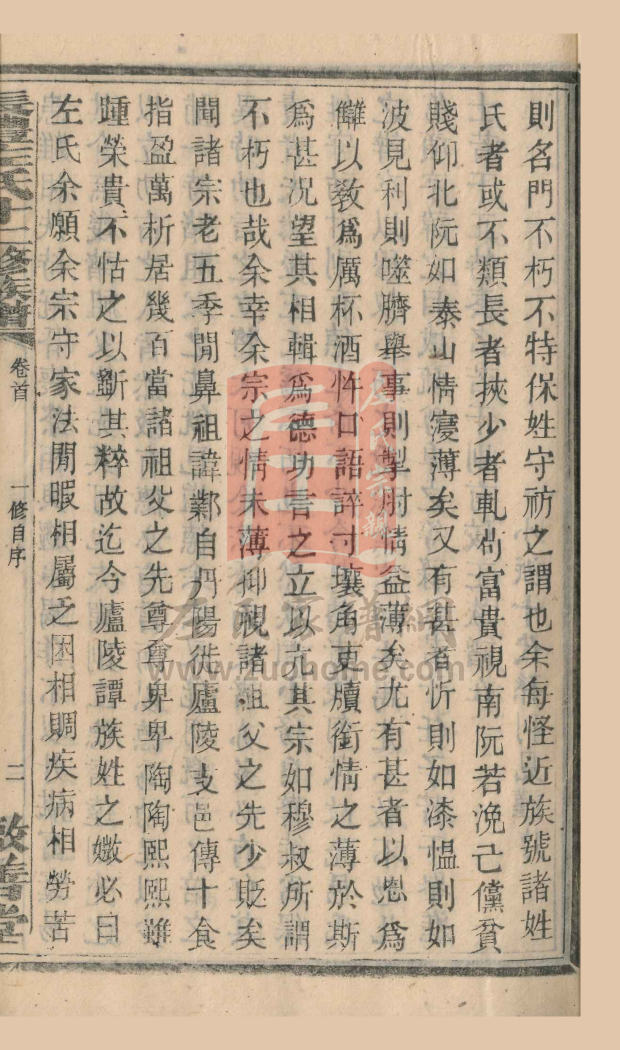 則名門不朽不特保姓守祊之謂也余每怪近族號諸姓
氏者或不類長者挾少者軋苟富貴視南阮若浼己儻貧
賤仰北阮如泰山情寖薄矣又有甚者忻則如漆慍則如
波見利則噬臍舉事則掣肘情益薄矣尤有甚者以恩為
讎以教爲厲杯酒忤口語誶寸壤角吏牘銜情之薄於斯
爲甚況望其相輯爲德功言之立以亢其宗如穆叔所謂
不朽也哉余幸余宗之情未薄仰視諸祖父之先少貶矣
聞諸宗老五季閒鼻祖諱鄴自丹陽徙廬陵支邑傳十食
指盈萬析居幾百當諸祖父之先尊尊卑卑陶陶熙熙雖
踵榮貴不怙之以斵其粹故迄今廬陵譚族姓之媺必曰
左氏余願余宗守家法閒暇相屬之困相賙疾病相勞苦
左氏十二修族譜
卷首
一修自序
二
敦善堂
www.zuohome.com